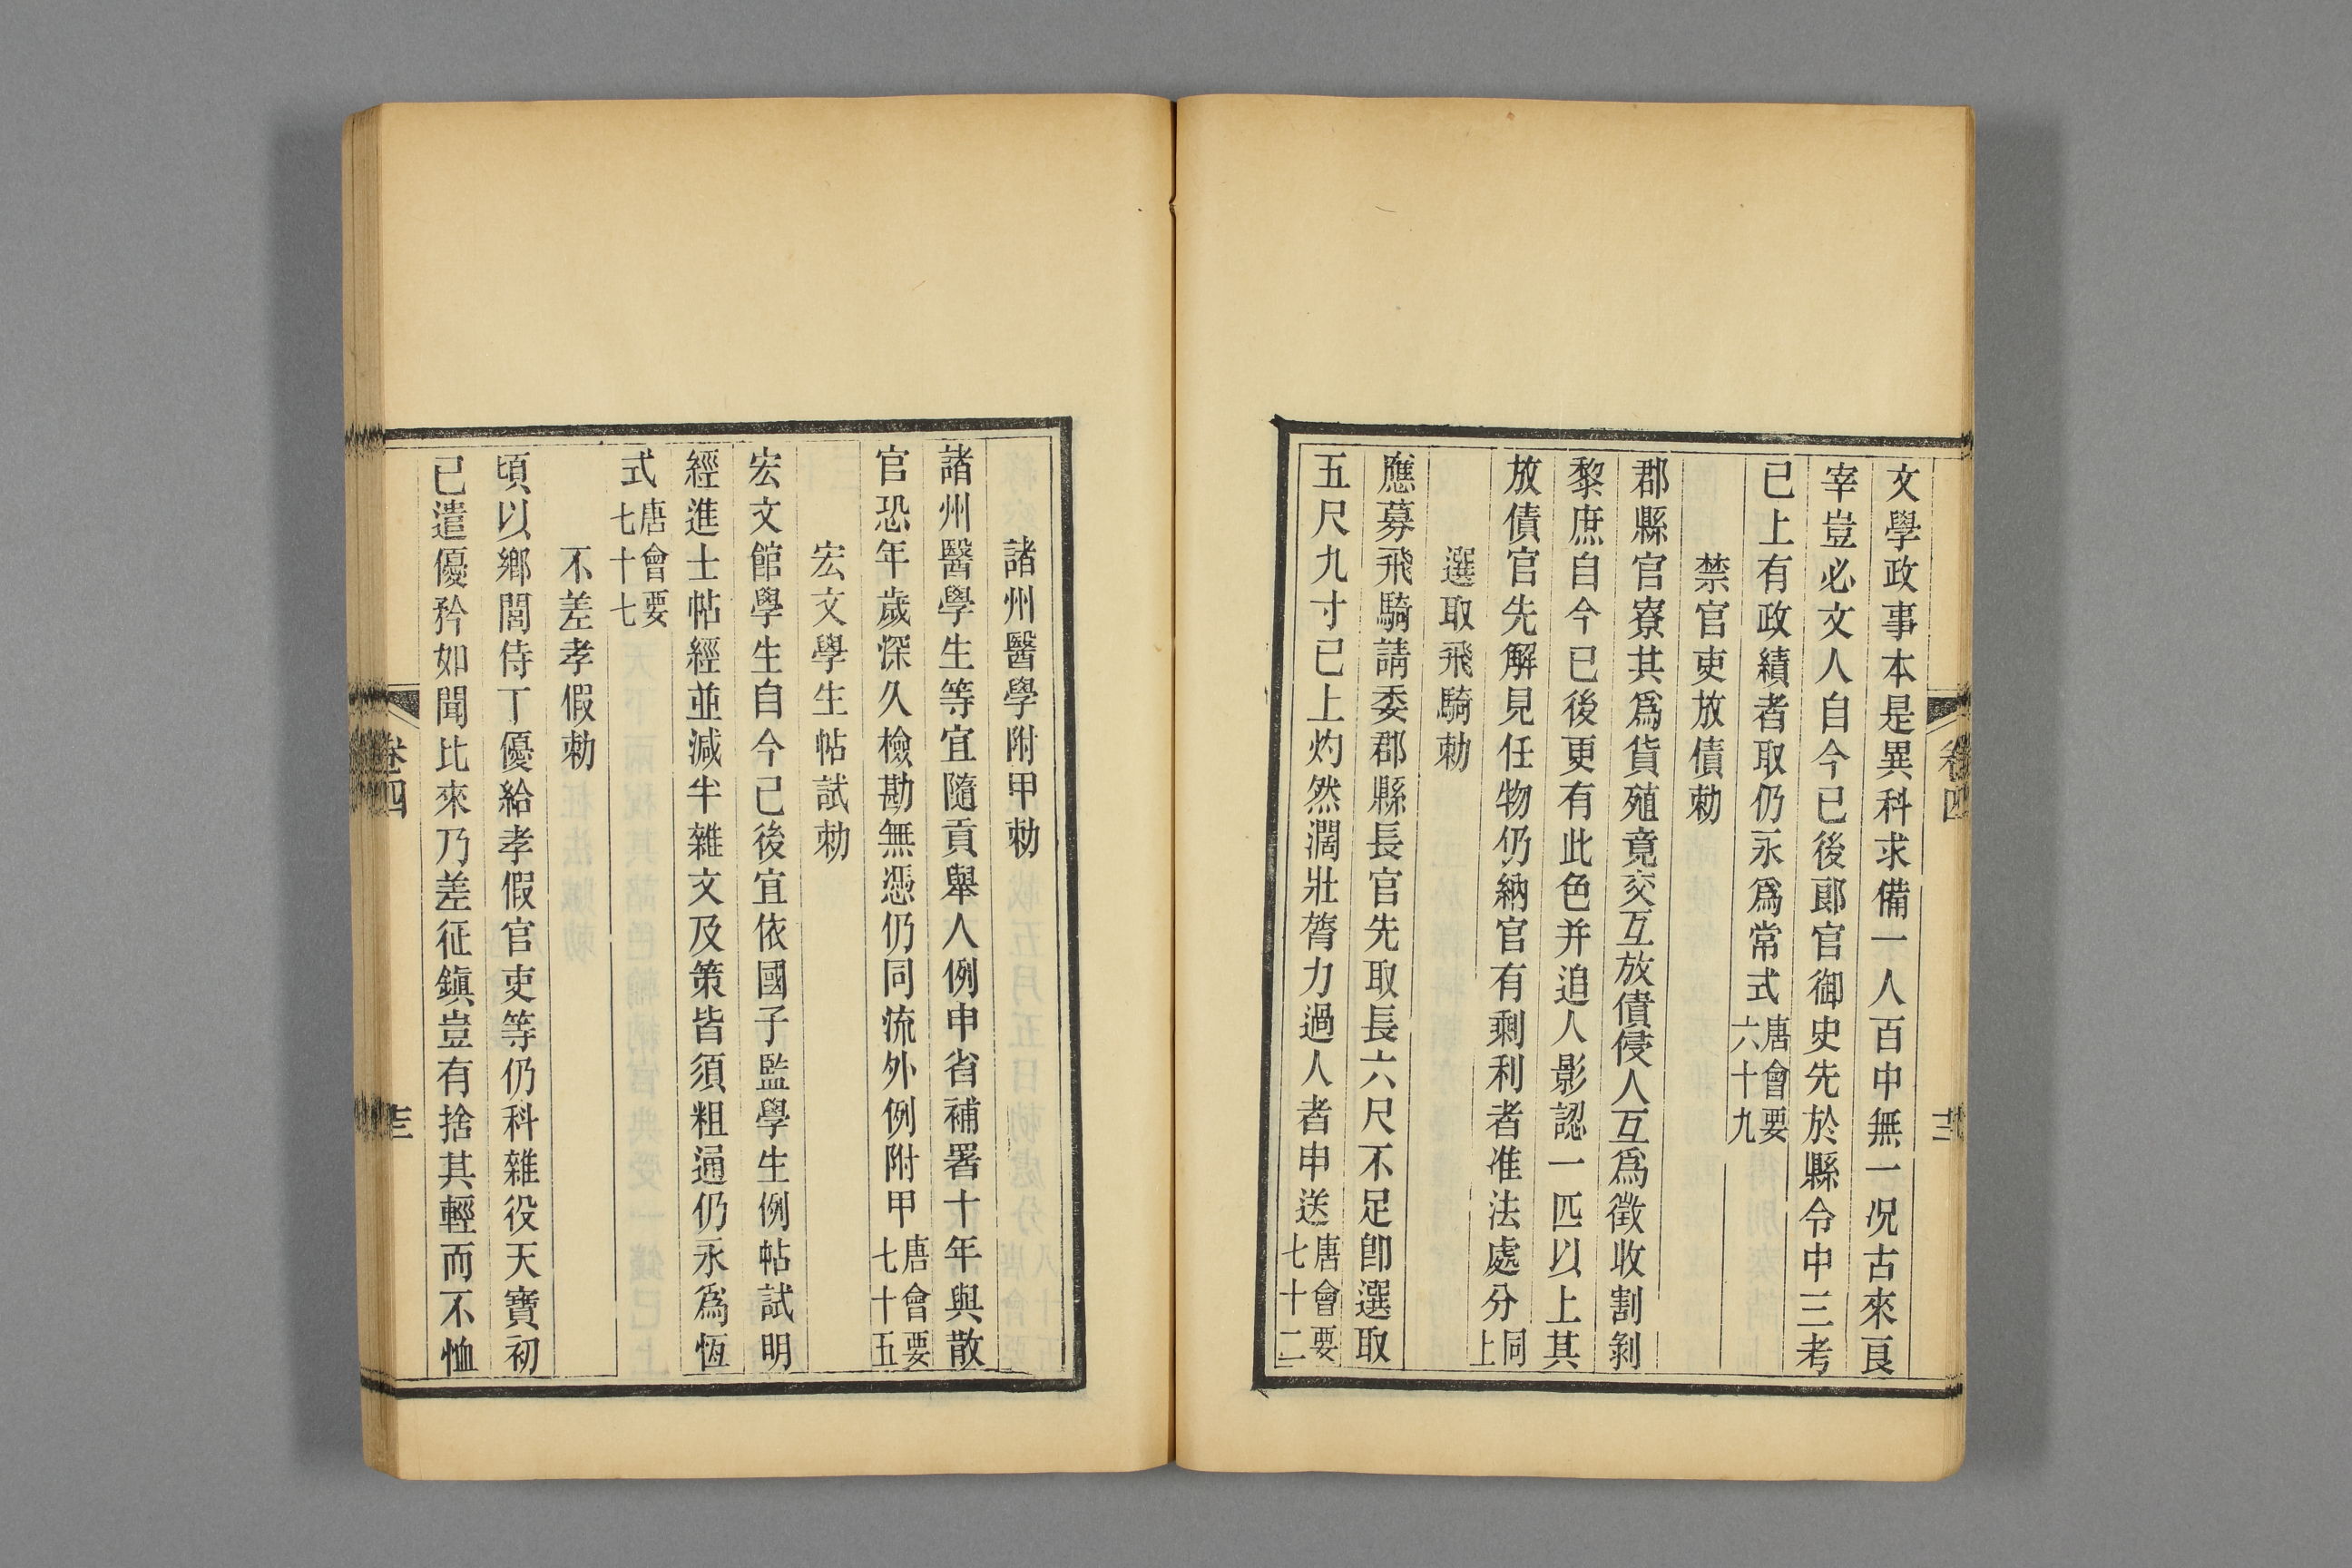 文學政事本是異科求備一人百中無一况古來良
宰豈必文人自今已後郎官御史先於縣令中三考
已上有政績者取仍永爲常式唐會要六十九
禁官吏放債勅
郡縣官寮其爲貨殖竟交互放債侵人互爲徵收割剝
黎庶自今已後更有此色并追人影認一匹以上其
放債官先解見任物仍納官有剩利者准法處分同上
選取飛騎勅
應募飛騎請委郡縣長官先取長六尺不足卽選取
五尺九寸已上灼然濶壯膂力過人者申送唐會要七十二
卷四
諸州醫學附甲勅
諸州醫學生等宜隨貢舉人例申省補署十年與散
官恐年歲深久檢勘無憑仍同流外例附甲唐會要七十五
宏文學生帖試勅
宏文館學生自今已後宜依國子監學生例帖試明
經進士帖經並減半雜文及策皆須粗通仍永爲恆
式唐會要七十七
不差孝假勅
頃以鄉閭侍丁優給孝假官吏等仍科雜役天寶初
已遣優矜如聞比來乃差征鎮豈有捨其輕而不恤
卷四